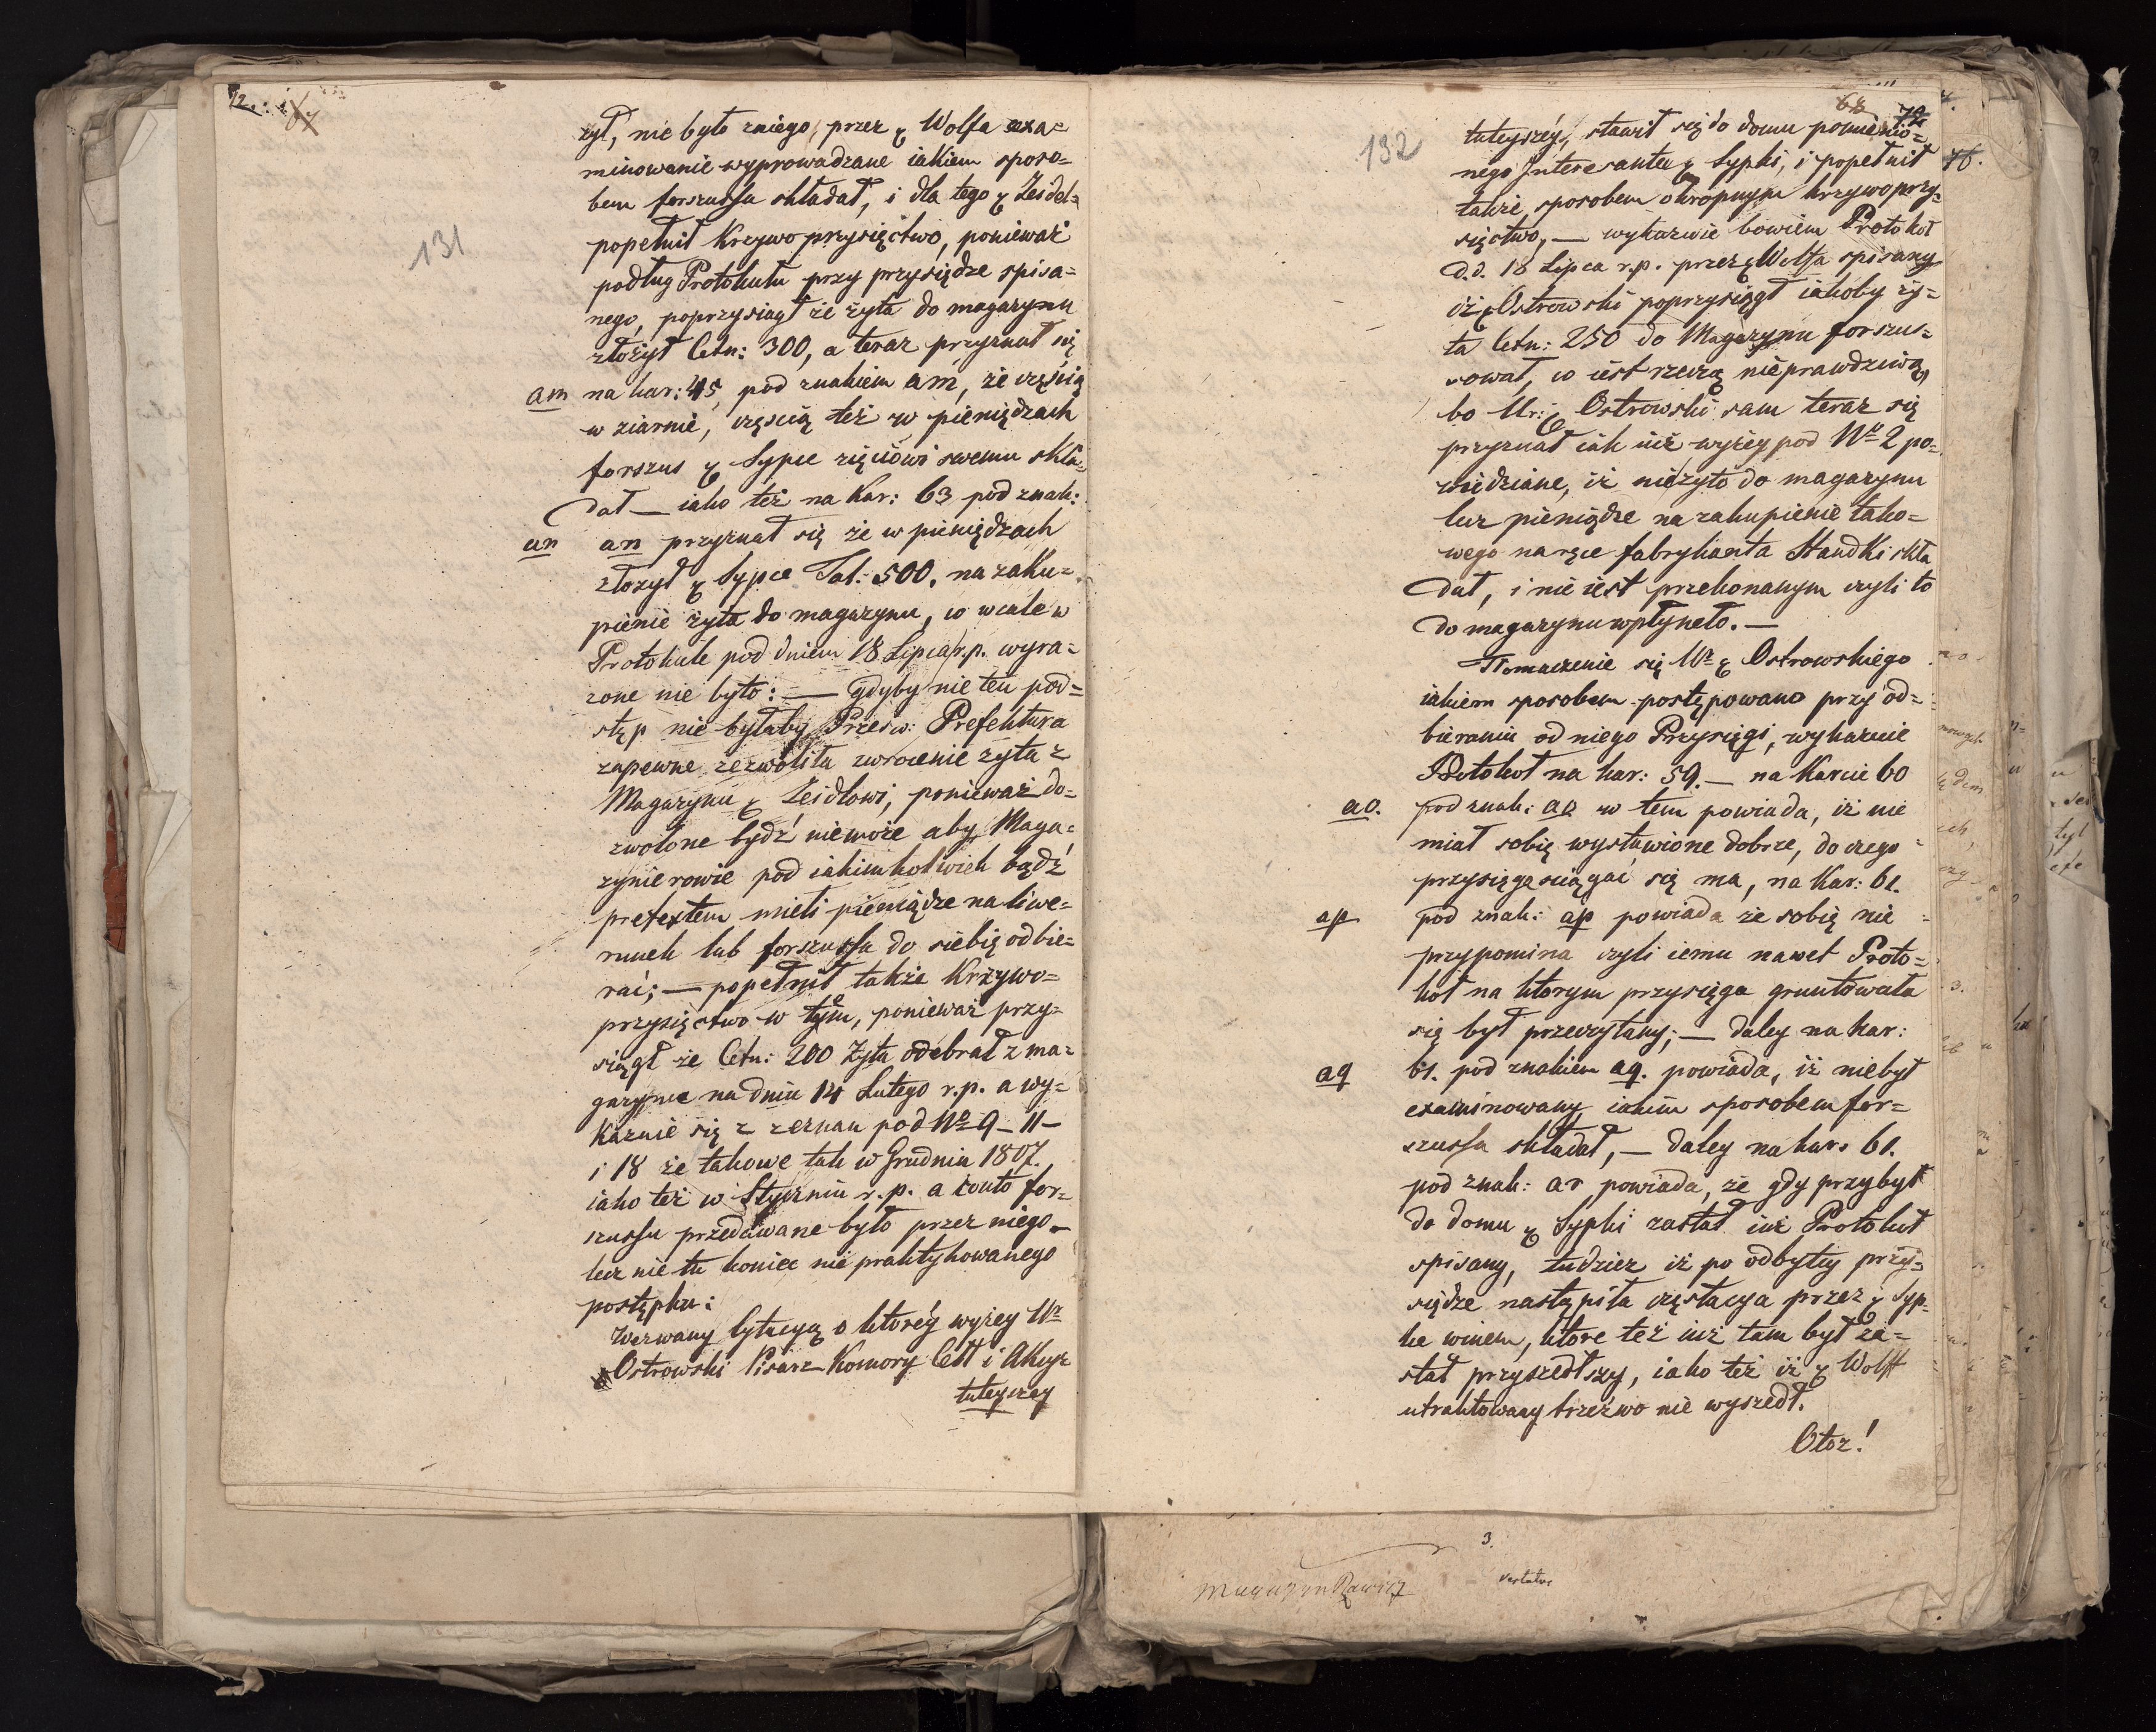 12.
67
131
żył, nie było zniego, przez q Wolfa exa=
minowanie wyprowadzane iakiem sposo=
bem forszussa składał, i dla tego q Zeidel=
popełnił Krzywoprzysięctwo, ponieważ
podług Protokułu przy przysiędze spisa=
nego, poprzysiągł że żyta do magazynu
złożył Cetn: 300, a teraz przyznał się
am na kar: 45, pod znakiem am, że częścią
w ziarnie, częścią też w pieniędzach
forszus q Sypce zięciowi swemu skła=
dał — iako też na Kar: 63 pod znak:
an an przyznał się że w pieniędzach
złożył q Sypce Tal: 500, na zaku=
pienie żyta do magazynu, co wcale w
Protokule pod dniem 18 Lipca r.p. wyra=
żone nie było: — gdyby nie ten pod=
stęp nie byłaby Przesw: Prefektura
zapewne zezwoliła zwrocenie żyta z
Magazynu q Zeidlowi, ponieważ do=
zwolone bydź niemoże aby Maga=
zynierowie pod iakimkolwiek bądź
pretextem mieli pieniądze na liwe=
runek lub forszussa do siebię odbie=
rać; — popełnił także Krzywo=
przysięctwo w tym, ponieważ przy=
siągł że Cetn: 200 Zyta odebrał z ma=
gazynu na dniu 14 Lutego r.p. a wy=
kaznie się z zeznan pod No 9 – 11 –
i 18 że takowe tak w Grudniu 1807.
iako też w Styczniu r.p. a conto for=
szussu przedawane było przez niego –
lecz nie tu koniec nie praktykowanego
postępku:
Wezwany Cytacyą o ktoréy wyżey Ur
q Ostrowski Pisarz Komory Celł i Akcyz
tuteyszey
68
132
tuteyszéy, stawił się do domu pomienio=
nego Interesanta q Sypki, i popełnił
także sposobem okropnym krzywoprzy=
sięctwo, — wykazuie bowiem Protokoł
d.d. 18 Lipca r.p. przez q Wolfa spisany
iż q Ostrowski poprzysiągł iakoby ży=
ta Cetn: 250 do Magazynu forszus=
sował, co iest rzeczą nieprawdziwą,
bo Ur: q Ostrowski sam teraz się
przyznał iak iuż wyżey pod No 2 po=
wiedziane, iż nie żyto do magazynu
lecz pieniądze na zakupienie tako=
wego na ręce fabrykanta Haudki skła
dał, i nie iest przekonanym czyli to
do magazynu wpłynęło. —
Tłomaczenie się Ur q Ostrowskiego
iakiem sposobem postępowano przy od=
bieraniu od niego Przysięgi, wykazuie
Protokoł na kar: 59. — na Karcie 60
ao. pod znak: ao w tem powiada, iż nie
miał sobię wystawione dobrze, do czego
przysięga sciągać się ma, na Kar: 61.
ap pod znak: ap powiada że sobię nie
przypomina czyli iemu nawet Proto=
koł na ktorym przysięga gruntowała
się był przeczytany; — daley na kar:
aq 61. pod znakiem aq. powiada, iż niebył
examinowany iakim sposobem for=
szussa składał, — daley na kar: 61.
pod znak: ar powiada, że gdy przybył
do domu q Sypki zastał iuż Protokuł
spisany, tudzież iż po odbytey przy=
siędze nastąpiła częstacya przez q Syp=
ke winem, ktore też iuż tam był za=
stał przyszedłszy, iako też iż q Wolff
utraktowany trzeźwo nie wyszedł.
Otoz!
3.